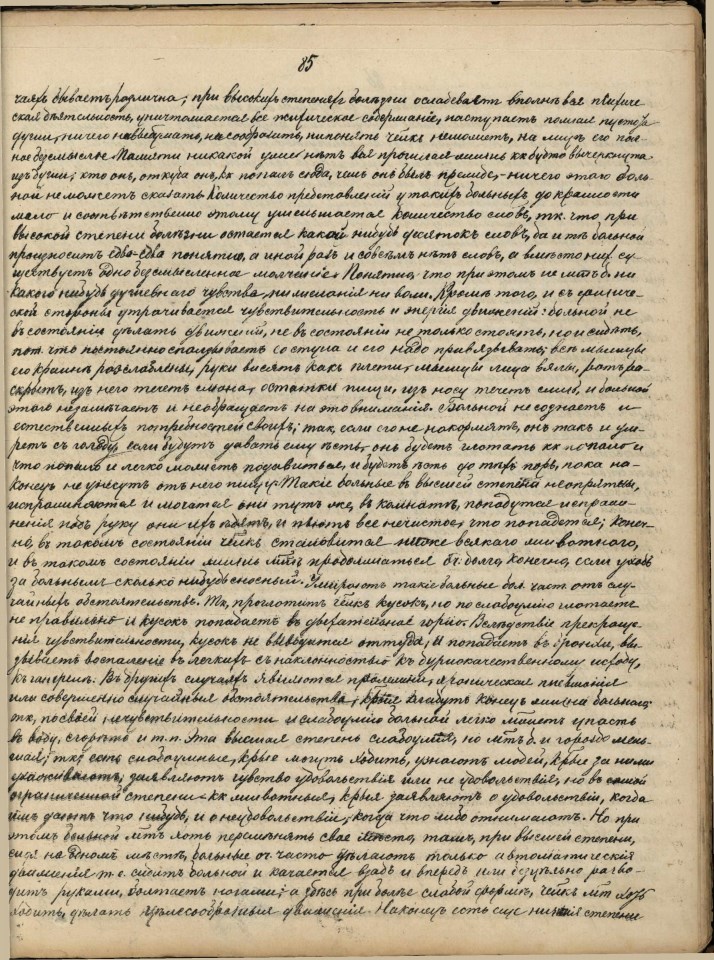 85
чаяхъ бываетъ различна; при высокихъ степеняхъ болѣзни ослабеваетъ вполнѣ вся психиче-
ская дѣятельность, уничтожается все психическое содержаніе, наступаетъ полная пустота
души, ничего ни выдумать, ни сообразить, ни понять чѣлкъ неможетъ, на лицѣ его пол-
ное безсмысліе. Памяти никакой уже нѣтъ вся прошлая жизнь кк будто вычеркнута
изъ души; кто онъ, откуда онъ, кк попалъ сюда, чемъ онъ былъ прежде, – ничего этого боль-
ной неможетъ сказать. Количество представленій у такихъ больныхъ до крайности
мало и соотвѣтственно этому уменьшается количество словъ, тк. что при
высокой степени болѣзни остается какой нибудь десятокъ словъ, да и тѣ больной
произноситъ едва-едва понятно, а иной разъ и совсѣмъ нѣтъ словъ, а вмѣсто них су-
ществуетъ одно безсмысленное молчаніе. Понятно, что при этомъ не мтъ б. ни
какого нибудь душевнаго чувства, ни желанія ни воли. Кромѣ того, и съ физиче-
ской стороны утрачивается чувствительность и энергія движеній: больной не
въ состояніи дѣлать движеній, не въ состояніи не только стоять, но и сидѣть,
пот. что постоянно сползываетъ со стула и его надо привязывать; всѣ мышцы
его крайнѣ разслаблены, руки висятъ какъ плети, мышцы лица вялы, ротъ ра-
скрытъ, изъ него течетъ слюна, остатки пищи, изъ носу течетъ слизь, и больной
этого незамѣчаетъ и необращаетъ на это вниманія. Больной не сознаетъ и
естественныхъ потребностей своихъ; такъ, если его не накормятъ, онъ такъ и ум-
ретъ съ голоду, если будутъ давать ему ѣсть, онъ будетъ глотать кк попало и
что попало и легко можетъ подавиться, и будетъ ѣсть до тѣхъ поръ, пока на-
конецъ не унесутъ отъ него пищу. Такіе больные въ высшей степени неопрятны,
испражняются и мочатся они тутъ же, въ комнатѣ, попадутся испраж-
ненія подъ руку они ихъ ѣдятъ, и пьютъ все нечистое, что попадется; конеч-
но, въ такомъ состояніи чѣлкъ становится ниже всякаго животнаго,
и въ такомъ состояніи жизнь мтъ продолжаться оч. долго, конечно, если уходъ
за больнымъ сколько нибудь сносный. Умираютъ такіе больные бол. част. отъ слу-
чайныхъ обстоятельствъ. Тк, проглотитъ чѣлкъ кусокъ, но по слабоумію глотаетъ
не правильно и кусокъ попадаетъ въ дыхательное горло. Вслѣдствіе прекраще-
нія чувствительности, кусокъ не выводится оттуда, и попадаетъ въ бронхи, вы-
зываетъ воспаленіе въ легкихъ съ наклонностью къ бурнокачественному исходу,
къ гангренѣ. Въ другихъ случаяхъ являются пролежни, хроническая пневмонія
или совершенно случайныя обстоятельства, крые кладутъ конецъ жизни больного:
тк, по своей нечувствительности и слабоумію больной легко можетъ упасть
въ воду, сгорѣть и т.п. Эта высшая степень слабоумія, но мтъ б. и гораздо мень-
шая; тк, есть слабоумные, крые могутъ ходить, узнаютъ людей, крые за ними
ухаживаютъ, заявляютъ чувство удовольствія или не удовольствія, но въ самой
ограниченной степени – кк животныя, крыя заявляютъ о удовольствіи, когда
имъ даютъ что нибудь, и о неудовольствіи, когда что либо отнимаютъ. Но при
этомъ больной мтъ хоть перемѣнять свое мѣсто, тамъ, при высшей степени,
сидя на одномъ мѣстѣ, больные оч. часто дѣлаютъ только автоматическія
движенія т.е. сидитъ больной и качается взадъ и впередъ или безцѣльно разво-
дитъ руками, болтаетъ ногами; а здѣсь при болѣе слабой формѣ, чѣлкъ мтъ хоть
ходить, дѣлать цѣлесообразныя движенія. Наконецъ есть еще низшія степени